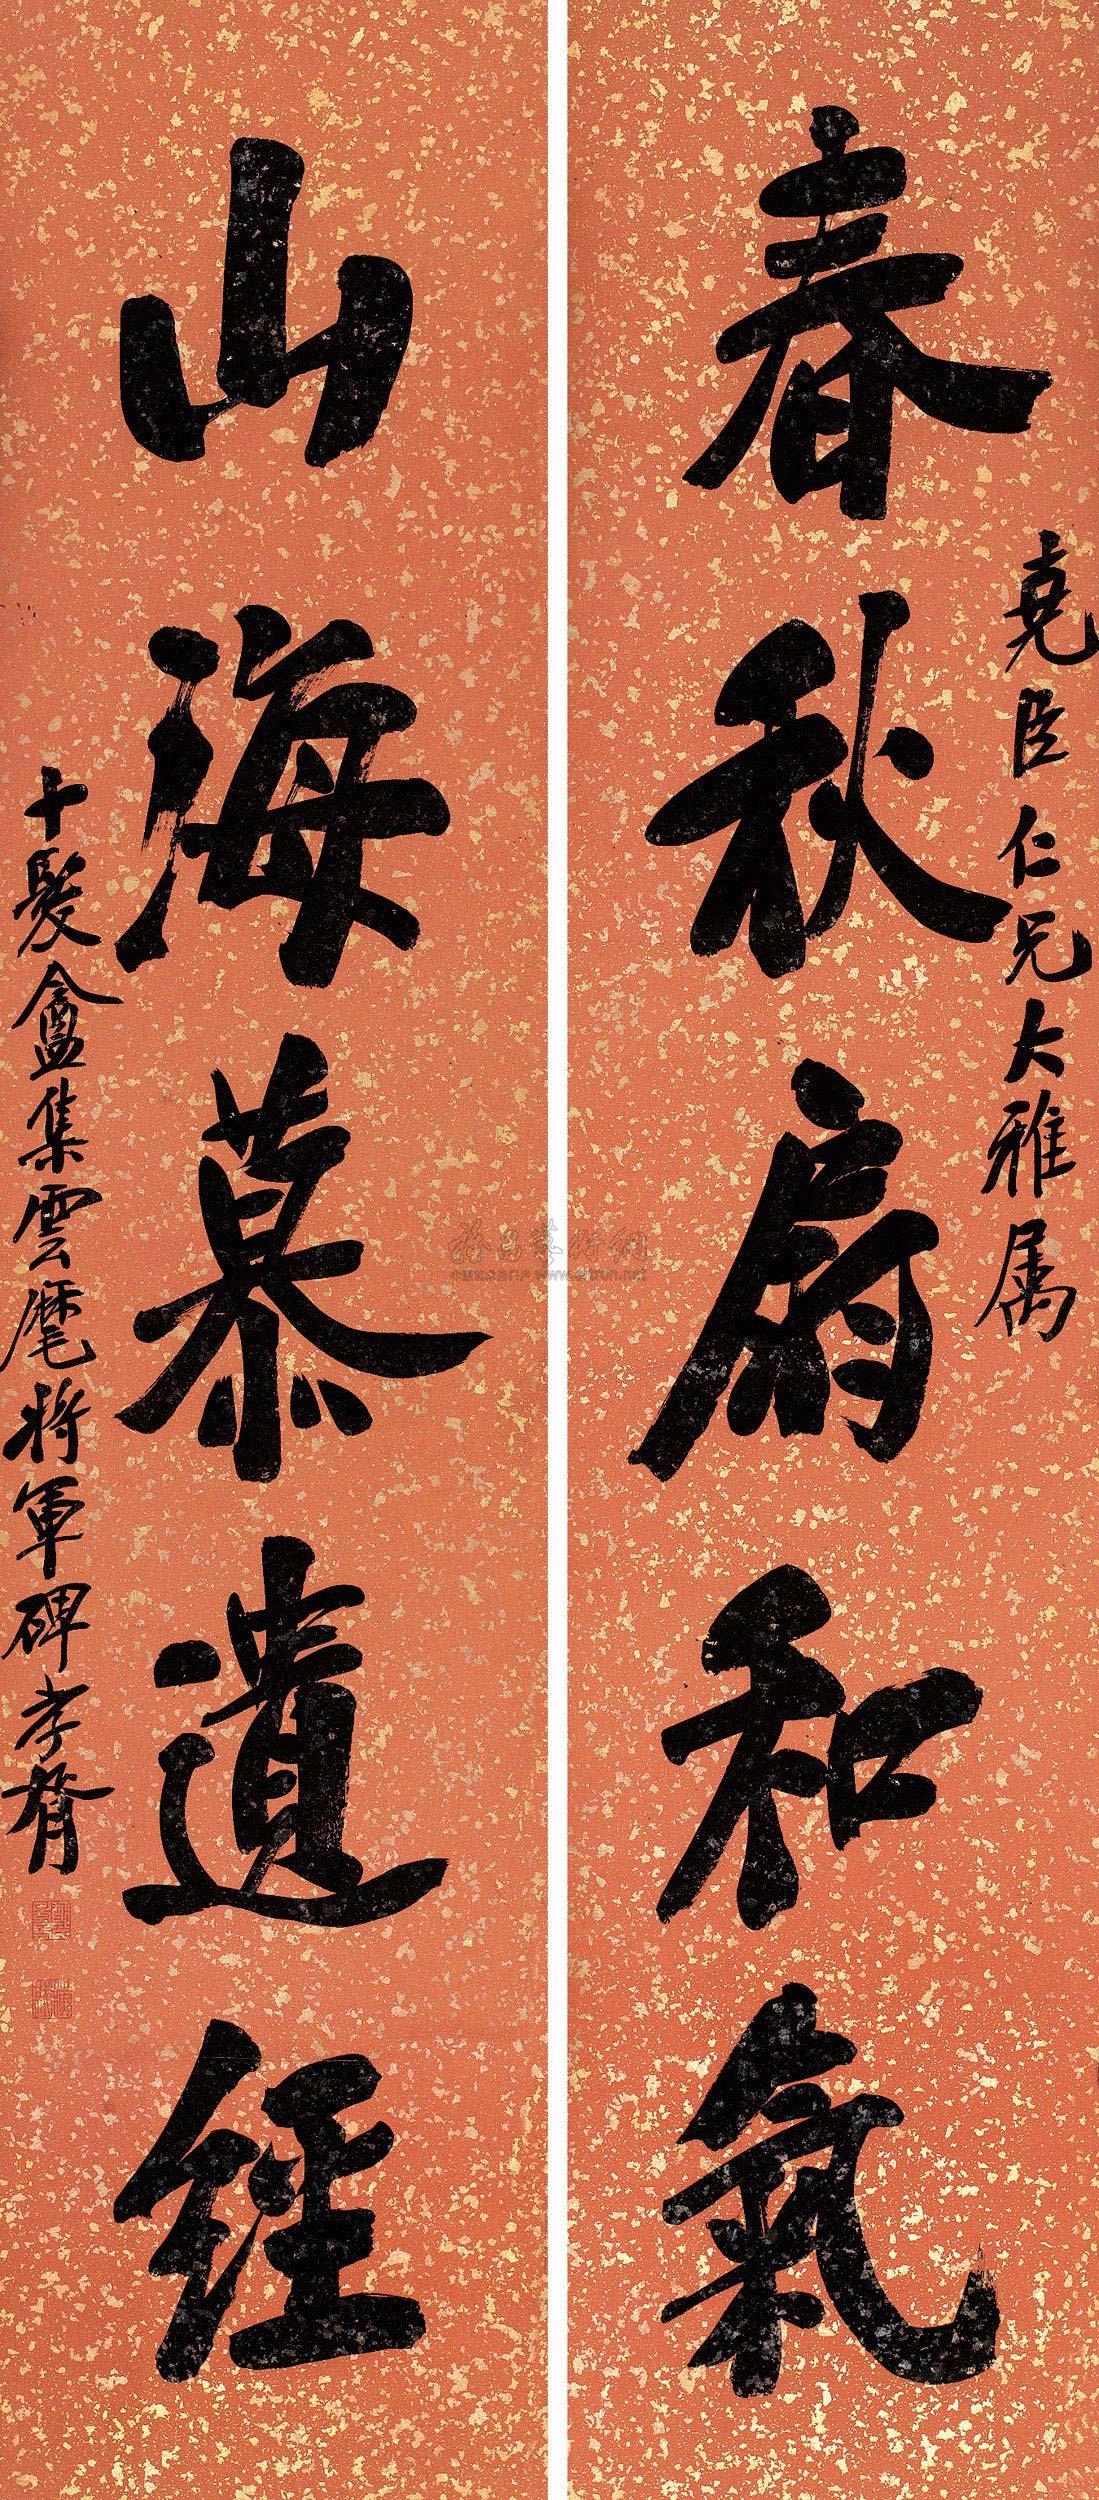 堯臣仁兄大雅属
春秋扇和氣
山海慕遺経
十髮盦集雲麾将軍碑孝胥